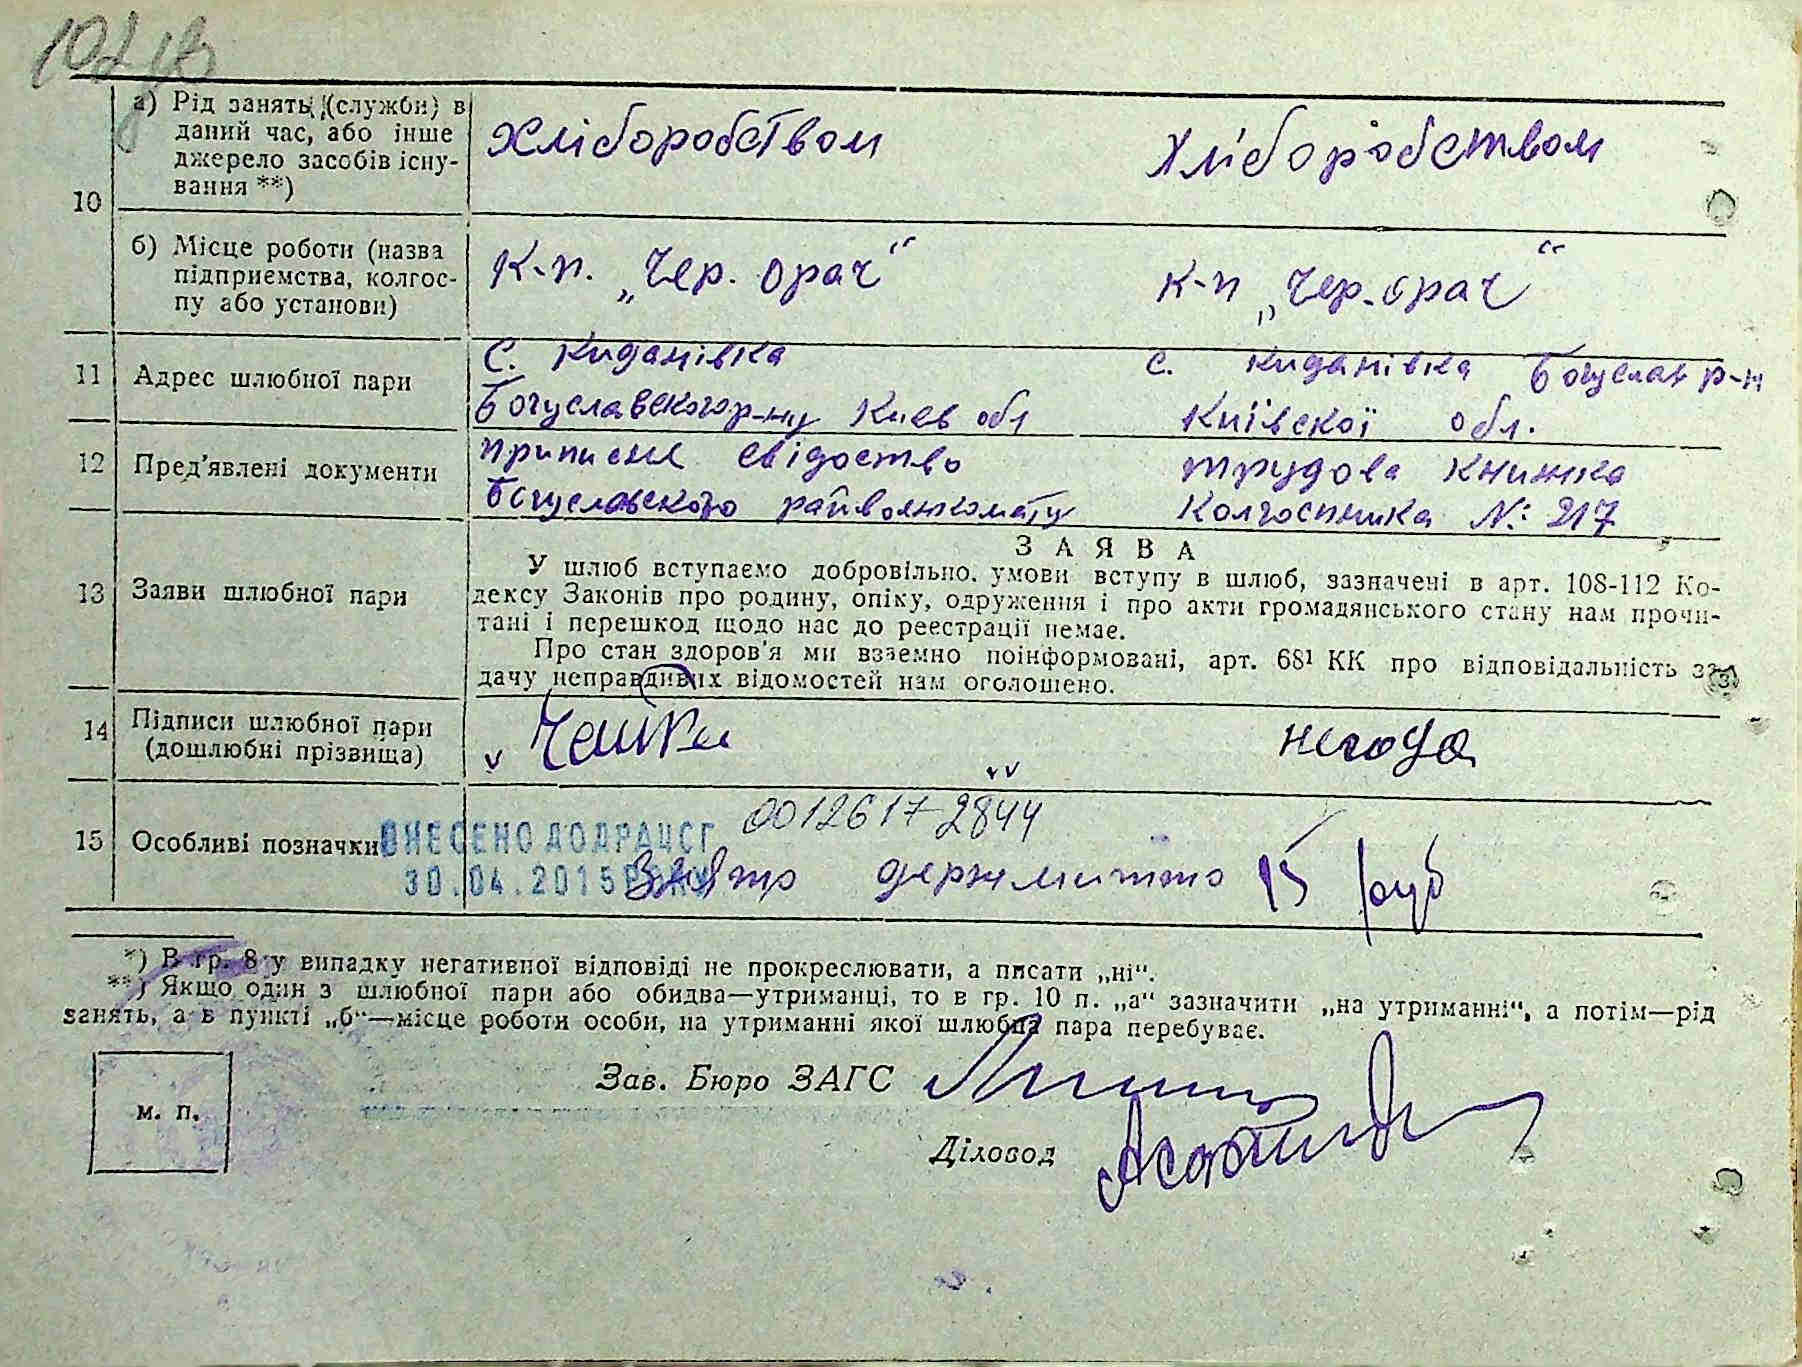 102 зв
10
а) Рід занять (службн) в
даний час, або інше
джерело засобів існу-
вання **)
Хліборобством
Хліборобством
б) Місце роботи (назва
підприємства, колгос-
пу або установи)
К-п. „Чер. орач“
К-п „Чер. орач“
11 Адрес шлюбної пари
С. Киданівка
Богуславского р-ну Киев обл
С. Киданівка Богуслав р-н
Київскої обл.
12 Пред'явлені документи
приписне свідоство
Богуславского райвоянкомату
трудова книжка
Колгоспника №: 217
13 Заяви шлюбної пари
ЗАЯВА
У шлюб вступаємо добровільно. умови вступу в шлюб, зазначені в арт. 108-112 Ко-
дексу Законів про родину, опіку, одруження і про акти громадянського стану нам прочи-
тані і перешкод щодо нас до реєстрації немає.
Про стан здоров'я ми взаємно поінформовані, арт. 68¹ КК про відповідальність за
дачу неправдивих відомостей нам оголошено.
14 Підписи шлюбної пари
(дошлюбні прізвища)
негода
15 Особливі позначки
ВНЕСЕНО ДО ДРАЦСГ
30.04.2015 РОКУ
00126172844
Взято держмитто 15 руб
*) В гр. 8 у випадку негативної відповіді не прокреслювати, а писати „ні“.
**) Якщо один з шлюбної пари або обидва—утриманці, то в гр. 10 п. „а“ зазначити „на утриманні“, а потім—рід
занять, а в пункті „б“—місце роботи особи, на утриманні якої шлюбна пара перебуває.
м. п.
Зав. Бюро ЗАГС
Діловод